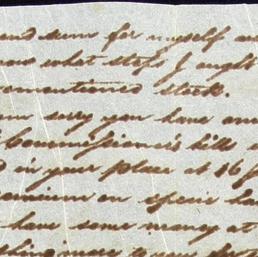 and seems for myself an
what steps I ought
mentioned stock.
sorry you have am
Commissioner's bills
in your place at 16
on specie
have some money at